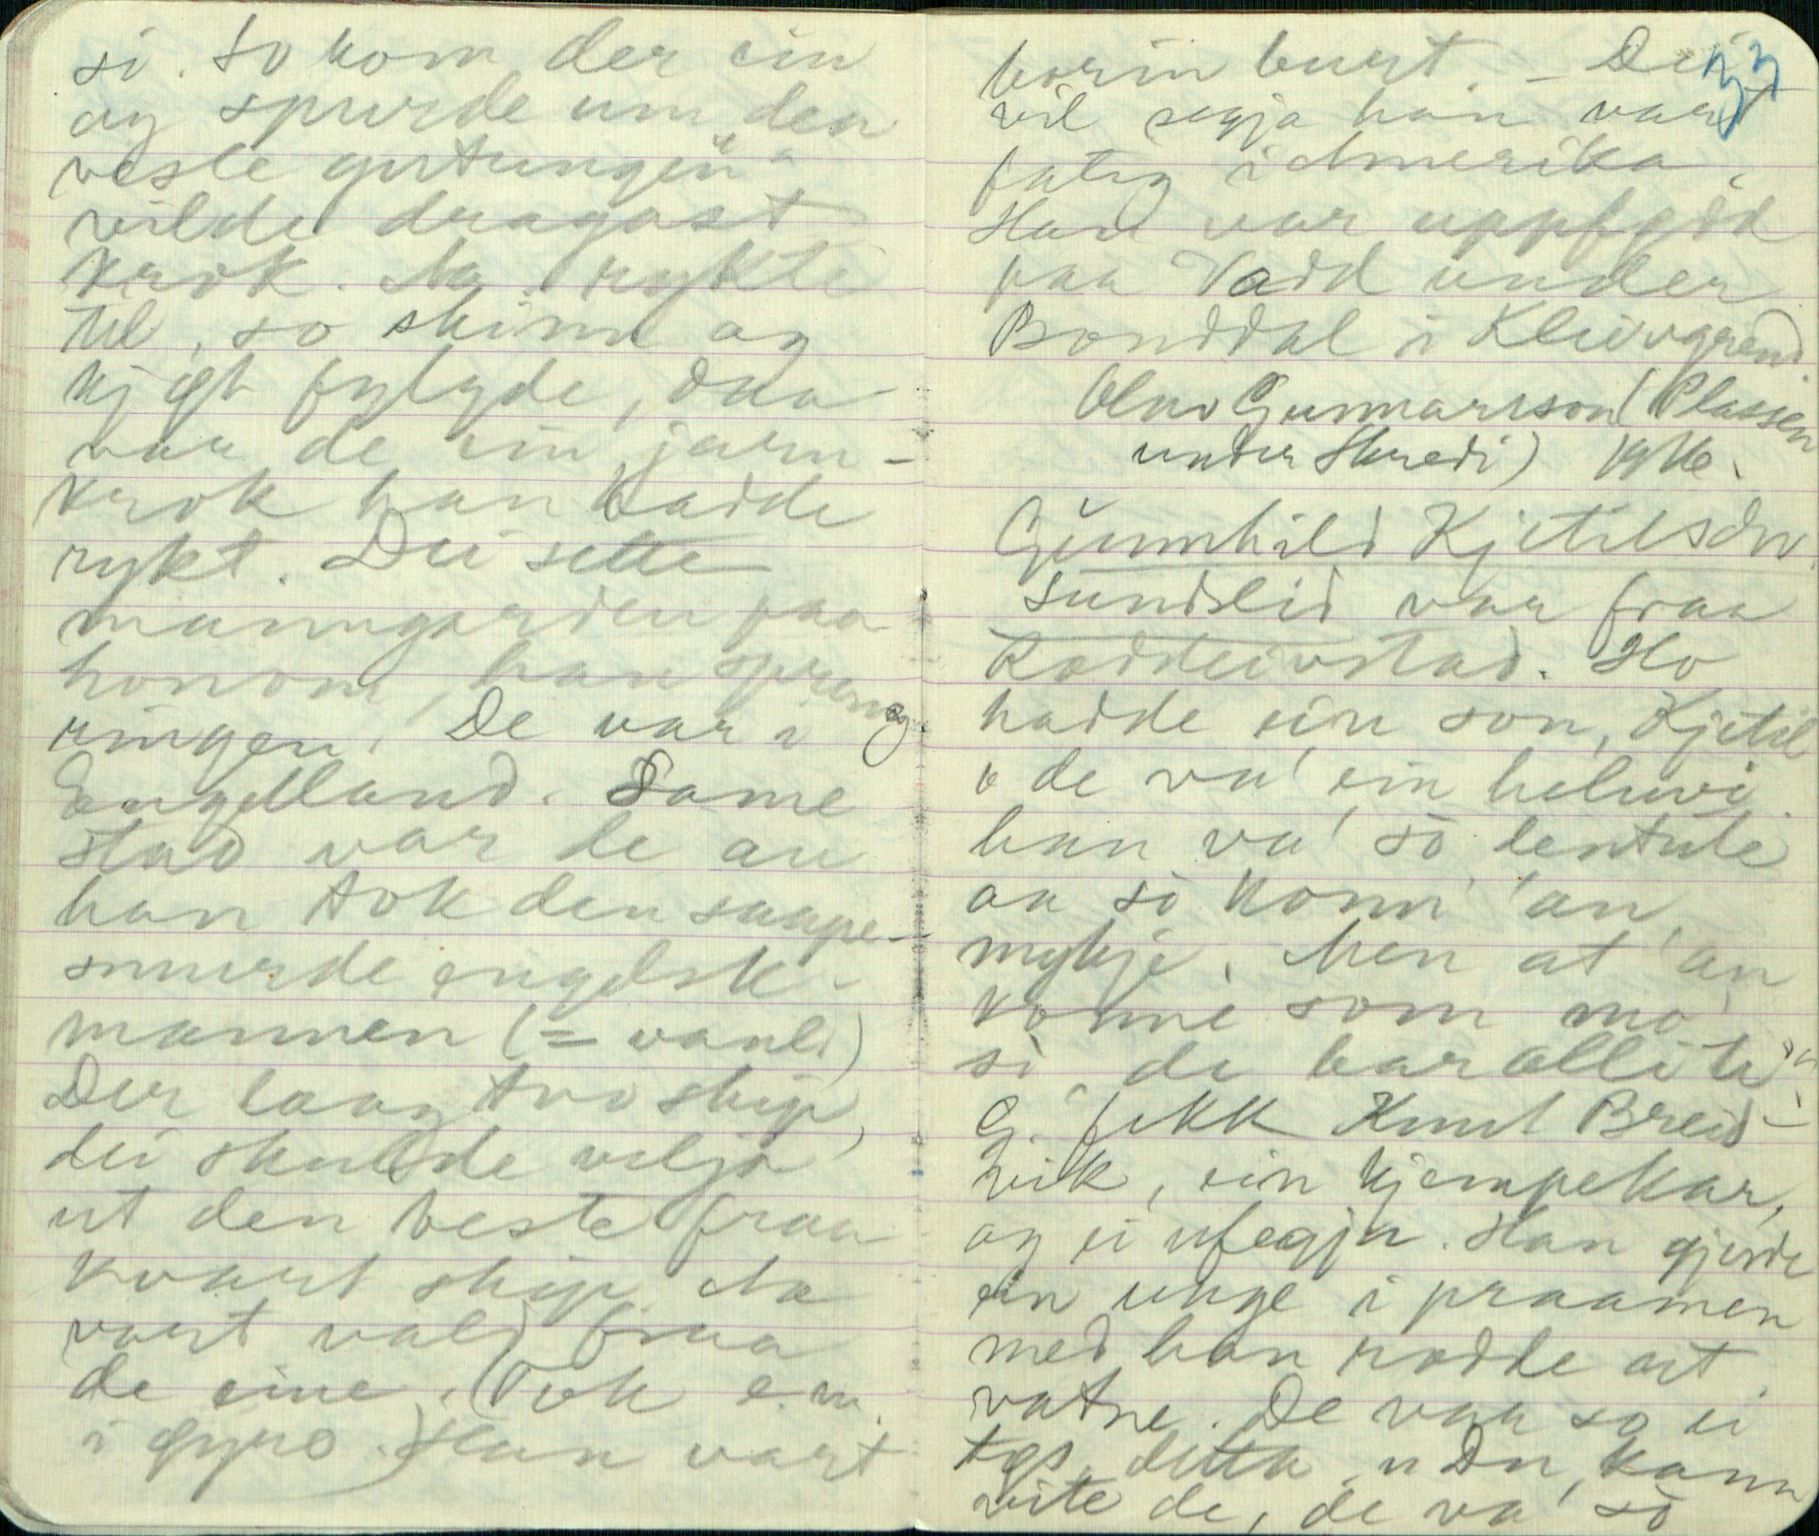 si. So kom der ein
og spurde um "den
vesle gutungen"
vilde dragast
krok. Aa rykte
til, so skinn og
kjøt fylgde, daa
var de ein jarn-
krok han hadde
rykt. Dei sette
manngarden paa
honom, han sprengde
ringen. De var i
Engelland. Same
stad var de au
han tok den saape-
smurde engelsk-
mannen (= vanl.)
Der laag tvo skip,
dei skulde velja
ut den beste fraa
kvart skip. Aa
vart vald fraa
de eine. (Tok e.m.
i gyro.) Han vart
33
borin burt. – Dei
vil segja han var
fatig i Amerika.
Han var uppfødd
paa Vadd under
Bonddal i Kleivgrend.
Olav Gunnarsson (Plassen
under Skredi) 1916.
Gunnhild Kjetilsdr.
Sundslid var fraa
Roddleivstad. Ho
hadde ein son, Kjetil
o de va' ein heluvi
han va' so lentule
aa so konn' 'an
mykje. Men at 'an
konne som mo
si, de bar alli ti"
G. fekk Knut Breid-
vik, ein kjempekar,
og ei ufegja. Han gjorde
ein unge i praamen
med han rodde ut
vatne. De var so ei
tøs detta. "Du kann
vite de, de va' so